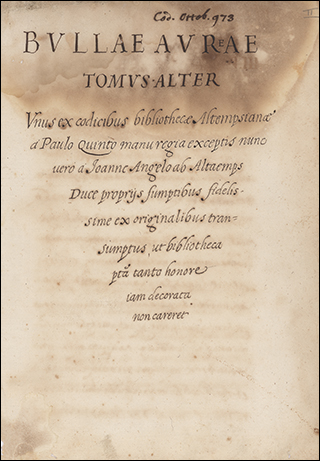 Cod. Ottob. 973
BVLLAE AVREAE
TOMVS·ALTER
Vnus ex codicibus bibliothecæ Altempsianæ
a Paulo Quinto manu regia exceptis nunc
vero a Joanne Angelo ab Altaemps
Duce proprijs sumptibus fidelis-
sime ex originalibus tran-
sumptus ut bibliotheca
pta tanto honore
iam decorata
non careret